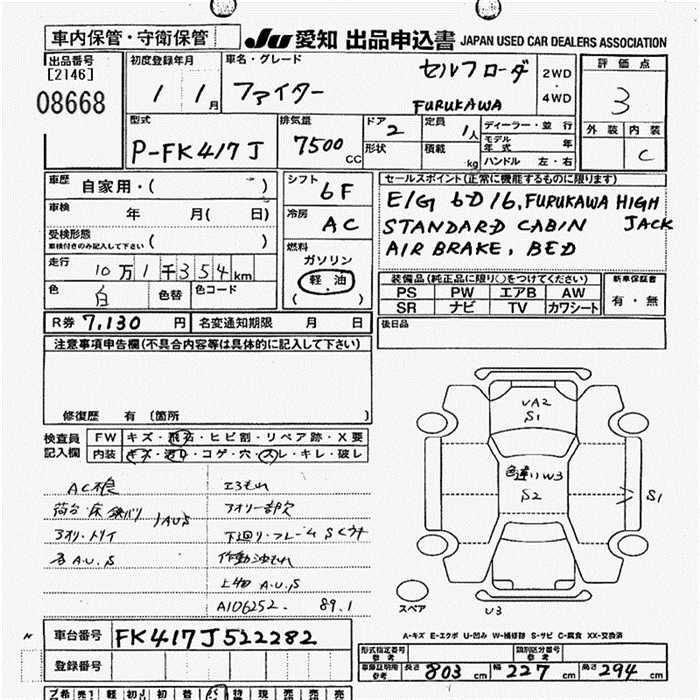 車内保管・守衛保管 JU 愛知 出品申込書 JAPAN USED CAR DEALERS ASSOCIATION
出品番号
[2146]
08668
初度登録年月
1 1月
車名・グレード
ファイター
セルフローダ
FURUKAWA
2WD
・
4WD
評価点
3
外装 内装
C
型式
P-FK417J
排気量
7500 CC
ドア
2
形状
定員
1人
積載
kg
ディーラー・並行
モデル年式 年
ハンドル 左・右
車歴 自家用・( )
車検 年 月( 日)
受検形態
車検付きのみ記入して下さい ( )
走行 10万1千354km
色 白 色替 色コード
シフト
6F
冷房
AC
燃料
ガソリン
軽油
( )
セールスポイント(正常に機能するものに限ります)
E/G 6D16, FURUKAWA HIGH
STANDARD CABIN JACK
AIR BRAKE, BED
装備品(純正品に限り○をつけてください)
PS PW エアB AW
SR ナビ TV カワシート
新車保証書
有・無
後日品
R券 7,130 円 名変通知期限 月 日
注意事項申告欄(不具合内容等は具体的に記入して下さい)
修復歴 有 〔箇所 〕
検査員
記入欄
FW キズ・飛石・ヒビ割・リペア跡・X要
内装 キズ・汚れ・コゲ・穴・スレ・キレ・破レ
AC不良
荷台・床鉄バリ
アオリ・トリイ
各A.U.S
エアもれ
アオリ一部欠
下廻り・フレームS
作動油もれ
上物 A.U.S
A106252. 89.1
UA2
S1
色違いW3
S2
S1
U3
スペア
A-キズ E-エクボ U-凹み W-補修跡 S-サビ C-腐食 XX-交換済
車台番号 FK417J522282
登録番号
形式指定番号
参考
類別区分番号
参考
車庫証明用
参考
長さ 803 cm 幅 227 cm 高さ 294 cm